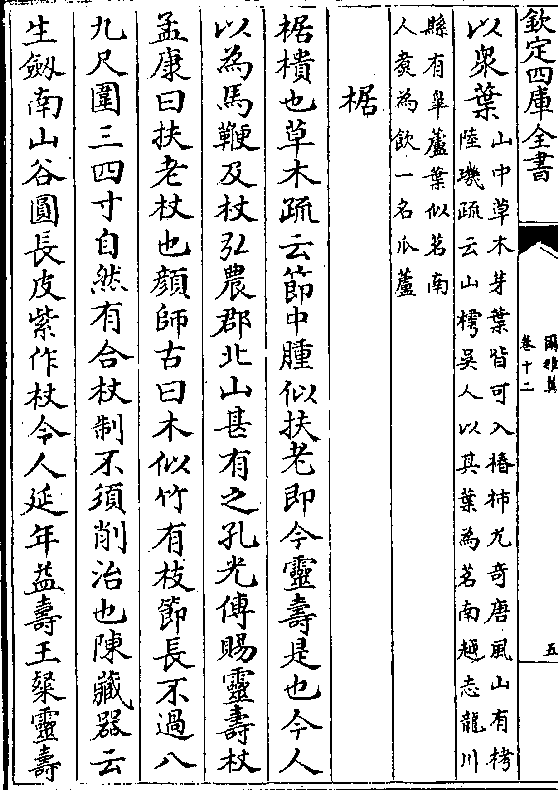 欽定四庫全書
爾雅翼
卷十二
五
以衆葉山中草木芽葉皆可入椿柹尤奇唐風山有栲
陸璣疏云山樗吳人以其葉為茗南越志龍川
縣有皐蘆葉似茗南
人煑為飲一名瓜蘆
椐
椐樻也草木疏云節中腫似扶老即今靈壽是也今人
以為馬鞭及杖弘農郡北山甚有之孔光傅賜靈壽杖
孟康曰扶老杖也顔師古曰木似竹有枝節長不過八
九尺圍三四寸自然有合杖制不須削治也陳藏器云
生劔南山谷圓長皮紫作杖令人延年益壽王粲靈壽